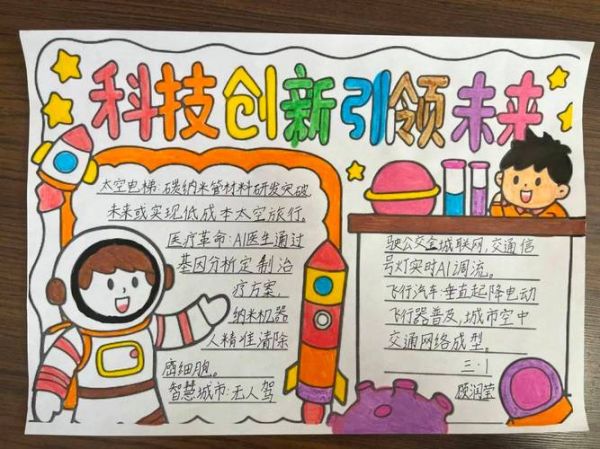 科技创新引领未来
太空电梯:碳纳米管材料研发突破
未来或实现低成本太空旅行。
医疗革命:AI医生通过
基因分析定制治
疗方案,
纳米机器
人精准清除
癌细胞。
智慧城市:无人驾
驶公交全城联网,交通信
号灯实时AI调流。
飞行汽车:垂直起降电动
飞行器普及,城市空中
交通网络成型。
三·1
顾润莹